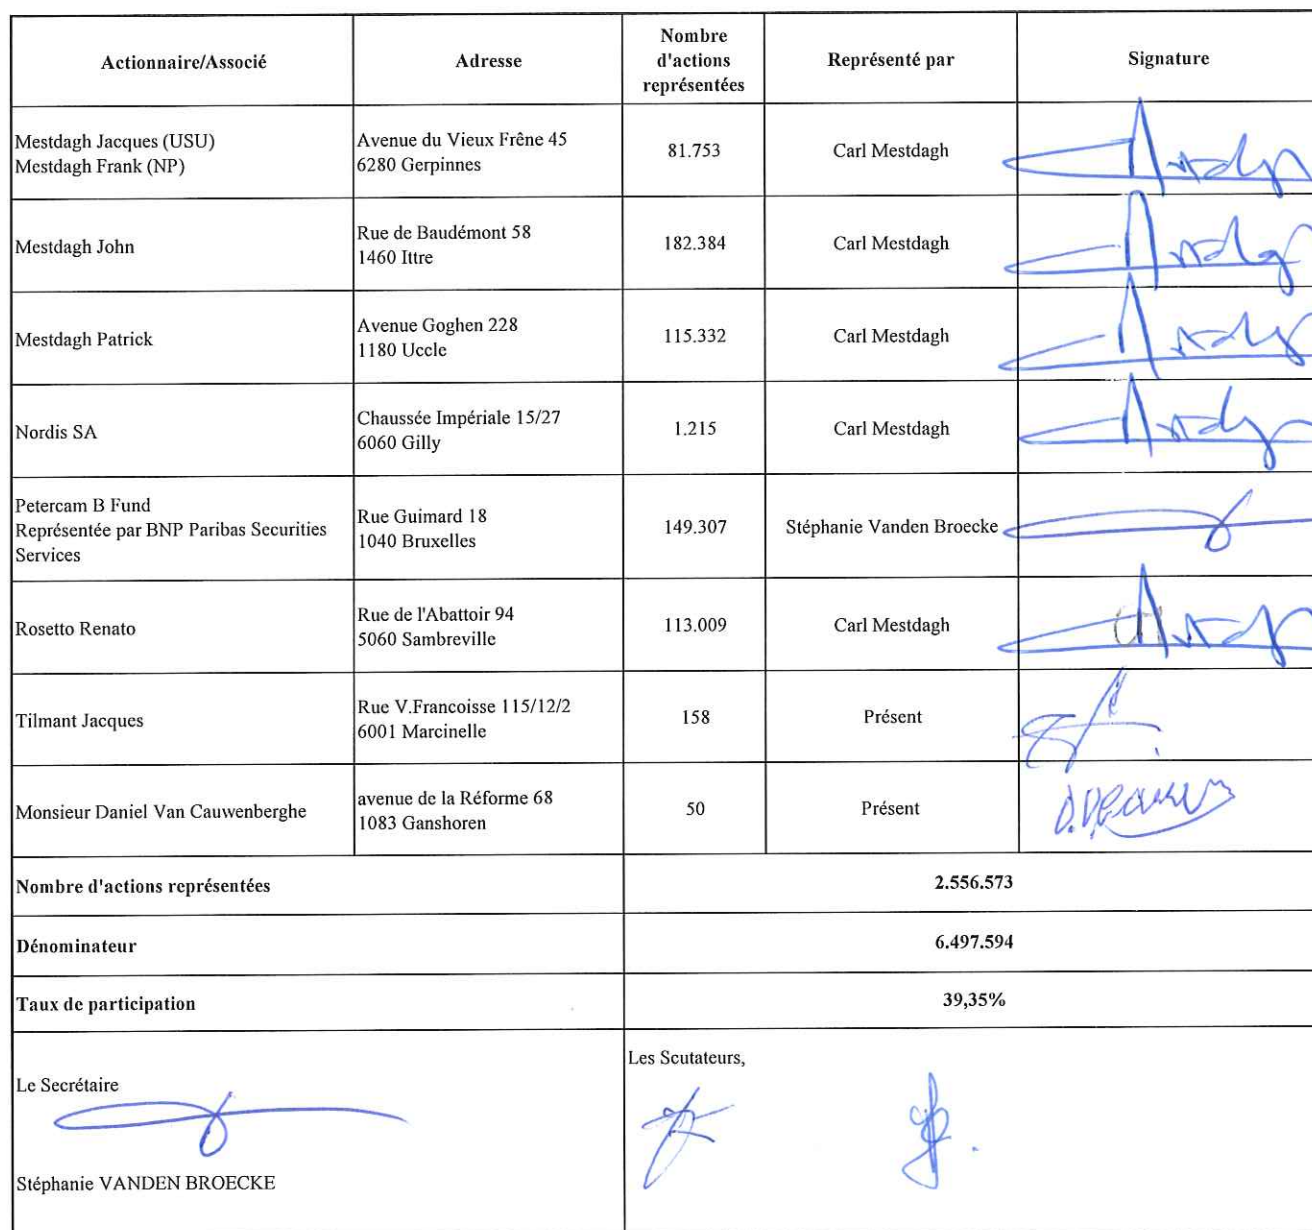 Actionnaire/Associé
Adresse
Nombre
d'actions
représentées
Représenté par
Signature
Mestdagh Jacques (USU)
Mestdagh Frank (NP)
Avenue du Vieux Frêne 45
6280 Gerpinnes
81.753
Carl Mestdagh
Mestdagh John
Rue de Baudémont 58
1460 Ittre
182.384
Carl Mestdagh
Mestdagh Patrick
Avenue Goghen 228
1180 Uccle
115.332
Carl Mestdagh
Nordis SA
Chaussée Impériale 15/27
6060 Gilly
1.215
Carl Mestdagh
Petercam B Fund
Représentée par BNP Paribas Securities
Services
Rue Guimard 18
1040 Bruxelles
149.307
Stéphanie Vanden Broecke
Rosetto Renato
Rue de l'Abattoir 94
5060 Sambreville
113.009
Carl Mestdagh
Tilmant Jacques
Rue V.Francoisse 115/12/2
6001 Marcinelle
158
Présent
Monsieur Daniel Van Cauwenberghe
avenue de la Réforme 68
1083 Ganshoren
50
Présent
Nombre d'actions représentées
2.556.573
Dénominateur
6.497.594
Taux de participation
39,35%
Le Secrétaire
Stéphanie VANDEN BROECKE
Les Scutateurs,